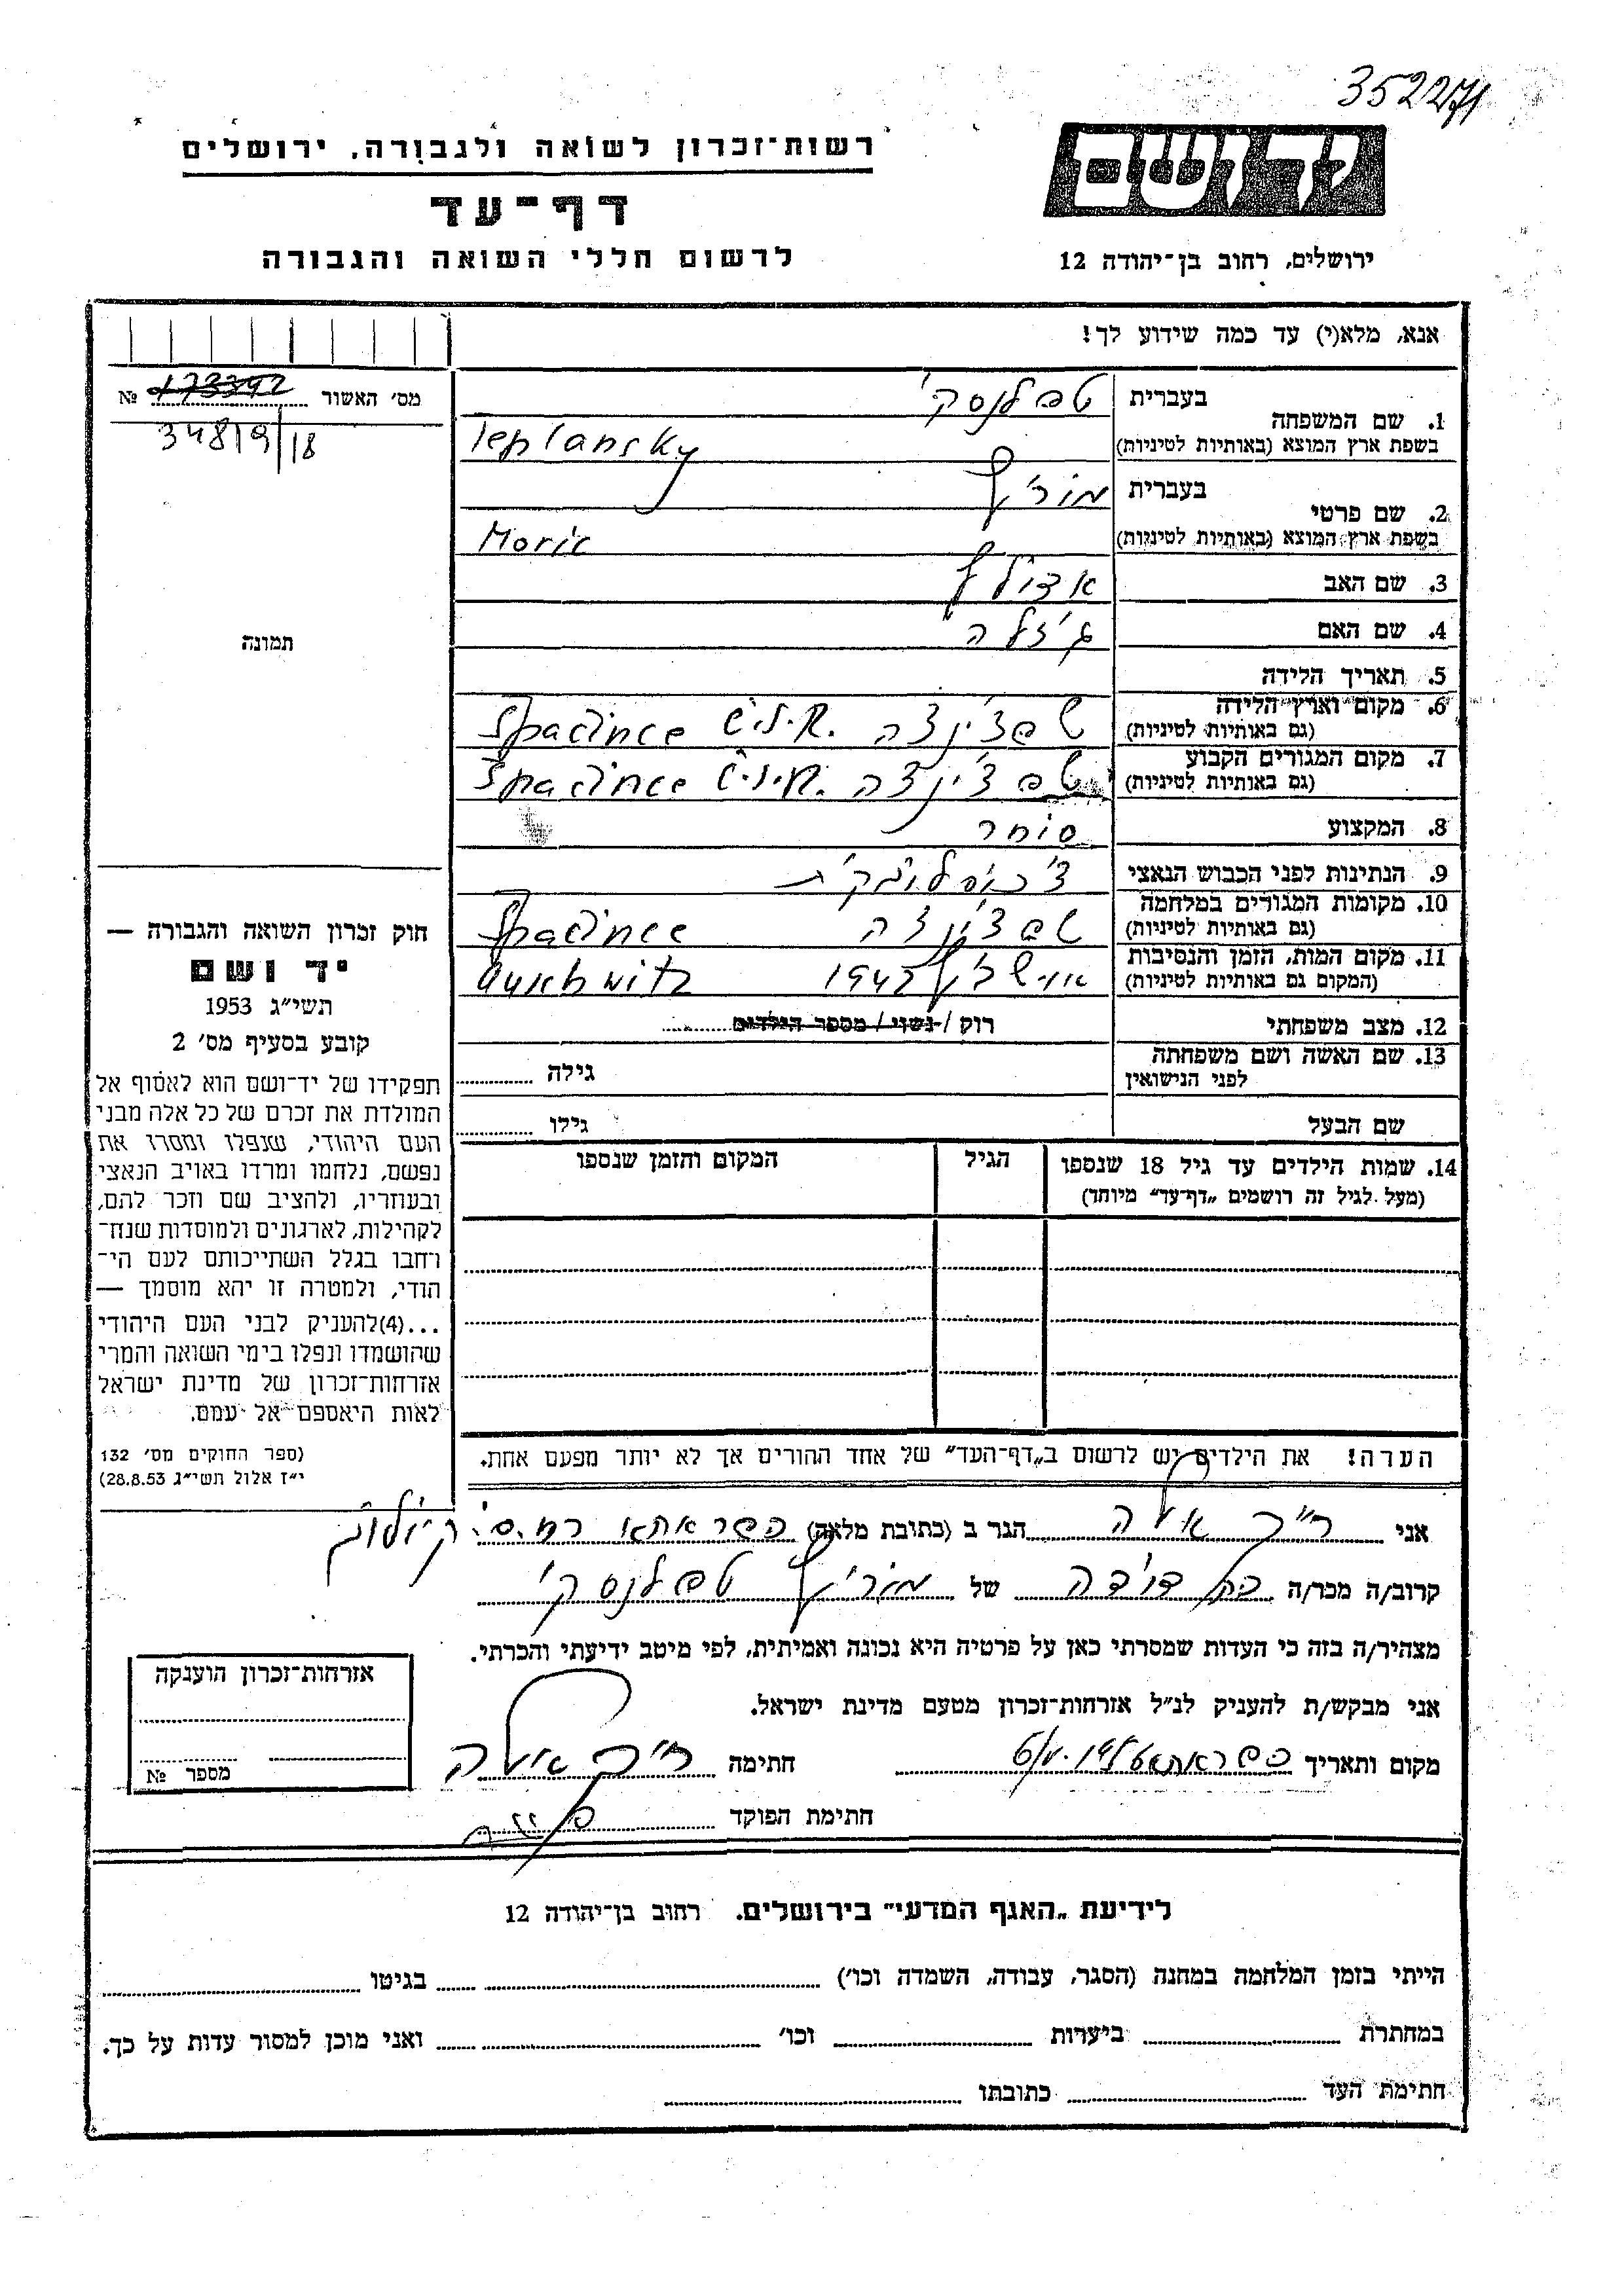 352271
רשות־זכרון לשואה ולגבורה, ירושלים
דף־עד
לרשום חללי השואה והגבורה
יד ושם
ירושלים, רחוב בן־יהודה 12
אנא, מלא(י) עד כמה שידוע לך!
מס׳ האשור 173392 №
34819/18
תמונה
1. שם המשפחה בעברית טפלנסקי
בשפת ארץ המוצא (באותיות לטיניות) Teplansky
2. שם פרטי בעברית מוריץ
בשפת ארץ המוצא (באותיות לטיניות) Moric
3. שם האב אדולף
4. שם האם גיזלה
5. תאריך הלידה
6. מקום וארץ הלידה שפצ׳ינצה Spacince
(גם באותיות לטיניות)
7. מקום המגורים הקבוע שפצ׳ינצה Spacince
(גם באותיות לטיניות)
8. המקצוע סוחר
9. הנתינות לפני הכבוש הנאצי צ׳כוסלובקית
10. מקומות המגורים במלחמה שפצ׳ינצה Spacince
(גם באותיות לטיניות)
11. מקום המות, הזמן והנסיבות אושביץ 1942 Auschwitz
(המקום גם באותיות לטיניות)
12. מצב משפחתי רוק / נשוי / מספר הילדים
13. שם האשה ושם משפחתה גילה
לפני הנישואין
שם הבעל גילו
14. שמות הילדים עד גיל 18 שנספו הגיל המקום והזמן שנספו
(מעל לגיל זה רושמים „דף־עד״ מיוחד)
הערה! את הילדים יש לרשום ב„דף־העד״ של אחד ההורים אך לא יותר מפעם אחת.
חוק זכרון השואה והגבורה —
יד ושם
תשי״ג 1953
קובע בסעיף מס׳ 2
תפקידו של יד־ושם הוא לאסוף אל
המולדת את זכרם של כל אלה מבני
העם היהודי, שנפלו ומסרו את
נפשם, נלחמו ומרדו באויב הנאצי
ובעוזריו, ולהציב שם וזכר להם,
לקהילות, לארגונים ולמוסדות שנח־
רבו בגלל השתייכותם לעם הי־
הודי, ולמטרה זו יהא מוסמך —
...(4)להעניק לבני העם היהודי
שהושמדו ונפלו בימי השואה והמרי
אזרחות־זכרון של מדינת ישראל
לאות היאספם אל עמם.
(ספר החוקים מס׳ 132
י״ז אלול תשי״ג 28.8.53)
אני רייך הגר ב (כתובת מלאה) כפר אתא
קרוב/ה מכר/ה בת דודה של מוריץ טפלנסקי
מצהיר/ה בזה כי העדות שמסרתי כאן על פרטיה היא נכונה ואמיתית, לפי מיטב ידיעתי והכרתי.
אני מבקש/ת להעניק לנ״ל אזרחות־זכרון מטעם מדינת ישראל.
מקום ותאריך כפר אתא חתימה רייך
חתימת הפוקד
אזרחות־זכרון הוענקה
מספר №
לידיעת „האגף המדעי״ בירושלים. רחוב בן־יהודה 12
הייתי בזמן המלחמה במחנה (הסגר, עבודה, השמדה וכו׳) בגיטו
במחתרת ביערות וכו׳ ואני מוכן למסור עדות על כך.
חתימת העד כתובתו